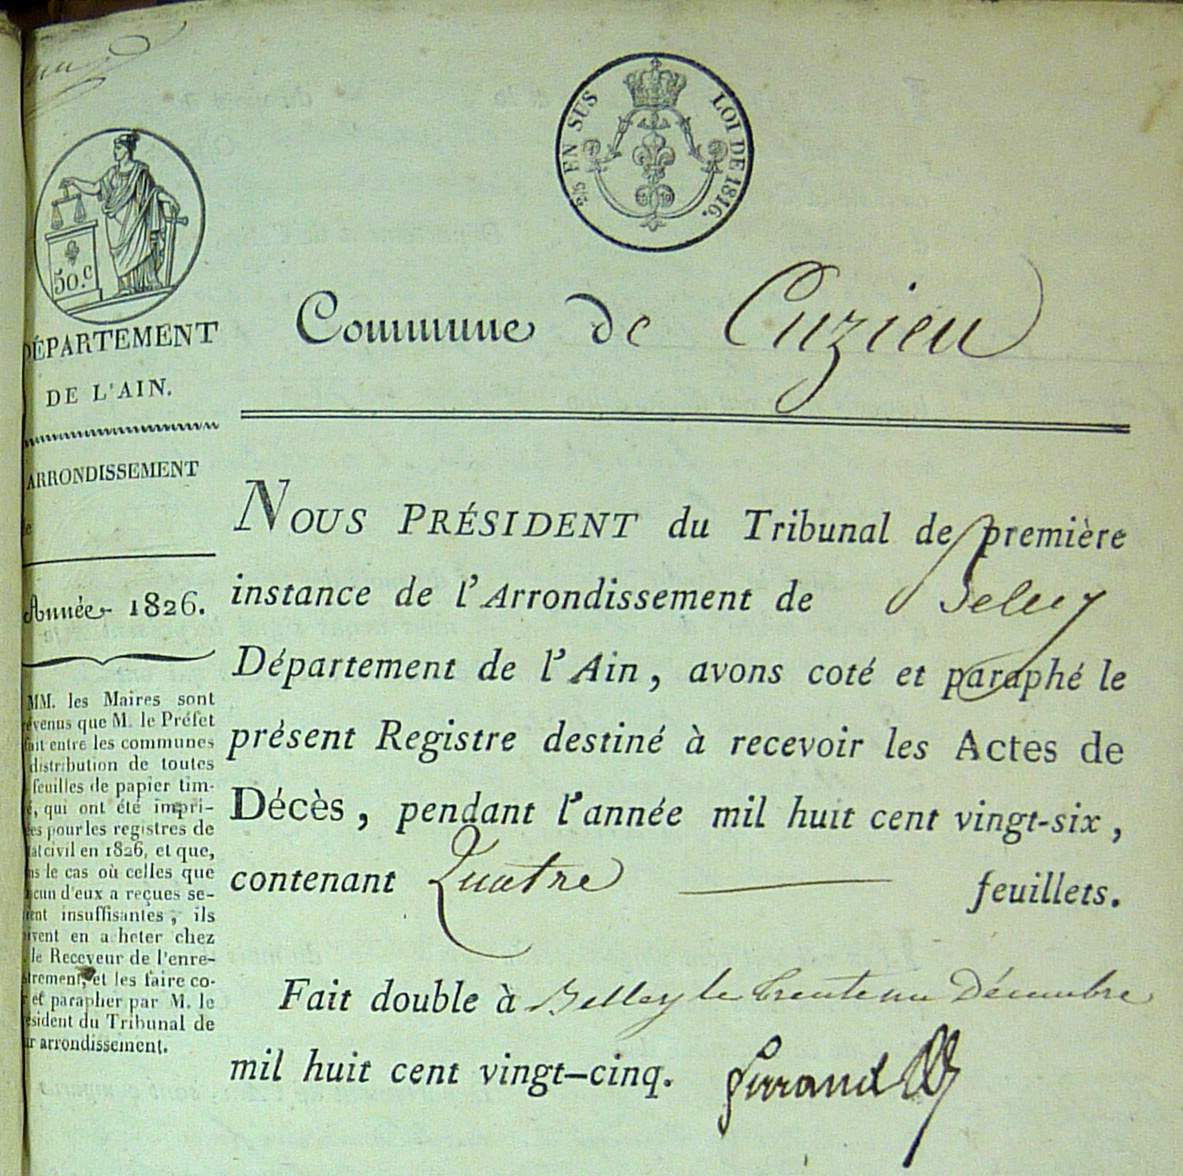 2/10 EN SUS
LOI DE 1816.
50.c
DÉPARTEMENT
DE L'AIN.
ARRONDISSEMENT
de
Année 1826.
MM. les Maires sont
évenus que M. le Préfet
fait entre les communes
distribution de toutes
feuilles de papier tim-
é, qui ont été impri-
ées pour les registres de
tat civil en 1826, et que,
ns le cas où celles que
acun d'eux a reçues se-
ient insuffisantes, ils
ivent en acheter chez
le Receveur de l'enre-
strement, et les faire co-
r et parapher par M. le
ésident du Tribunal de
ur arrondissement.
Commune de Cuzieu
NOUS PRÉSIDENT du Tribunal de première
instance de l'Arrondissement de Belley
Département de l'Ain, avons coté et paraphé le
présent Registre destiné à recevoir les Actes de
Décès, pendant l'année mil huit cent vingt-six,
contenant Quatre feuillets.
Fait double à Belley le trente un Décembre
mil huit cent vingt-cinq.